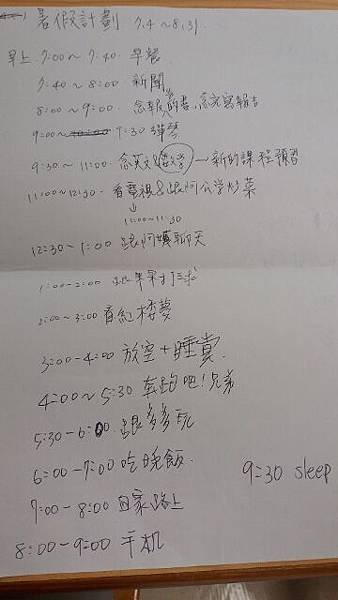 暑假計劃 7.4~8.31
早上 7:00~7:40 早餐
7:40~8:00 新聞
8:00~9:00 念報的書,念完寫報告
9:00~7:30 彈琴
9:30~11:00 念英文&數學→新的課程預習
11:00~12:30 看電視&跟阿公学炒菜
↓
11:00~11:30
12:30~1:00 跟阿嬤聊天
1:00-2:00 打球
2:00~3:00 看紅楼夢
3:00-4:00 放空+睡覺
4:00~5:30 奔跑吧!兄弟
5:30-6:00 跟多多玩
6:00-7:00 吃晚飯
9:30 sleep
7:00-8:00 回家路上
8:00-9:00 手机